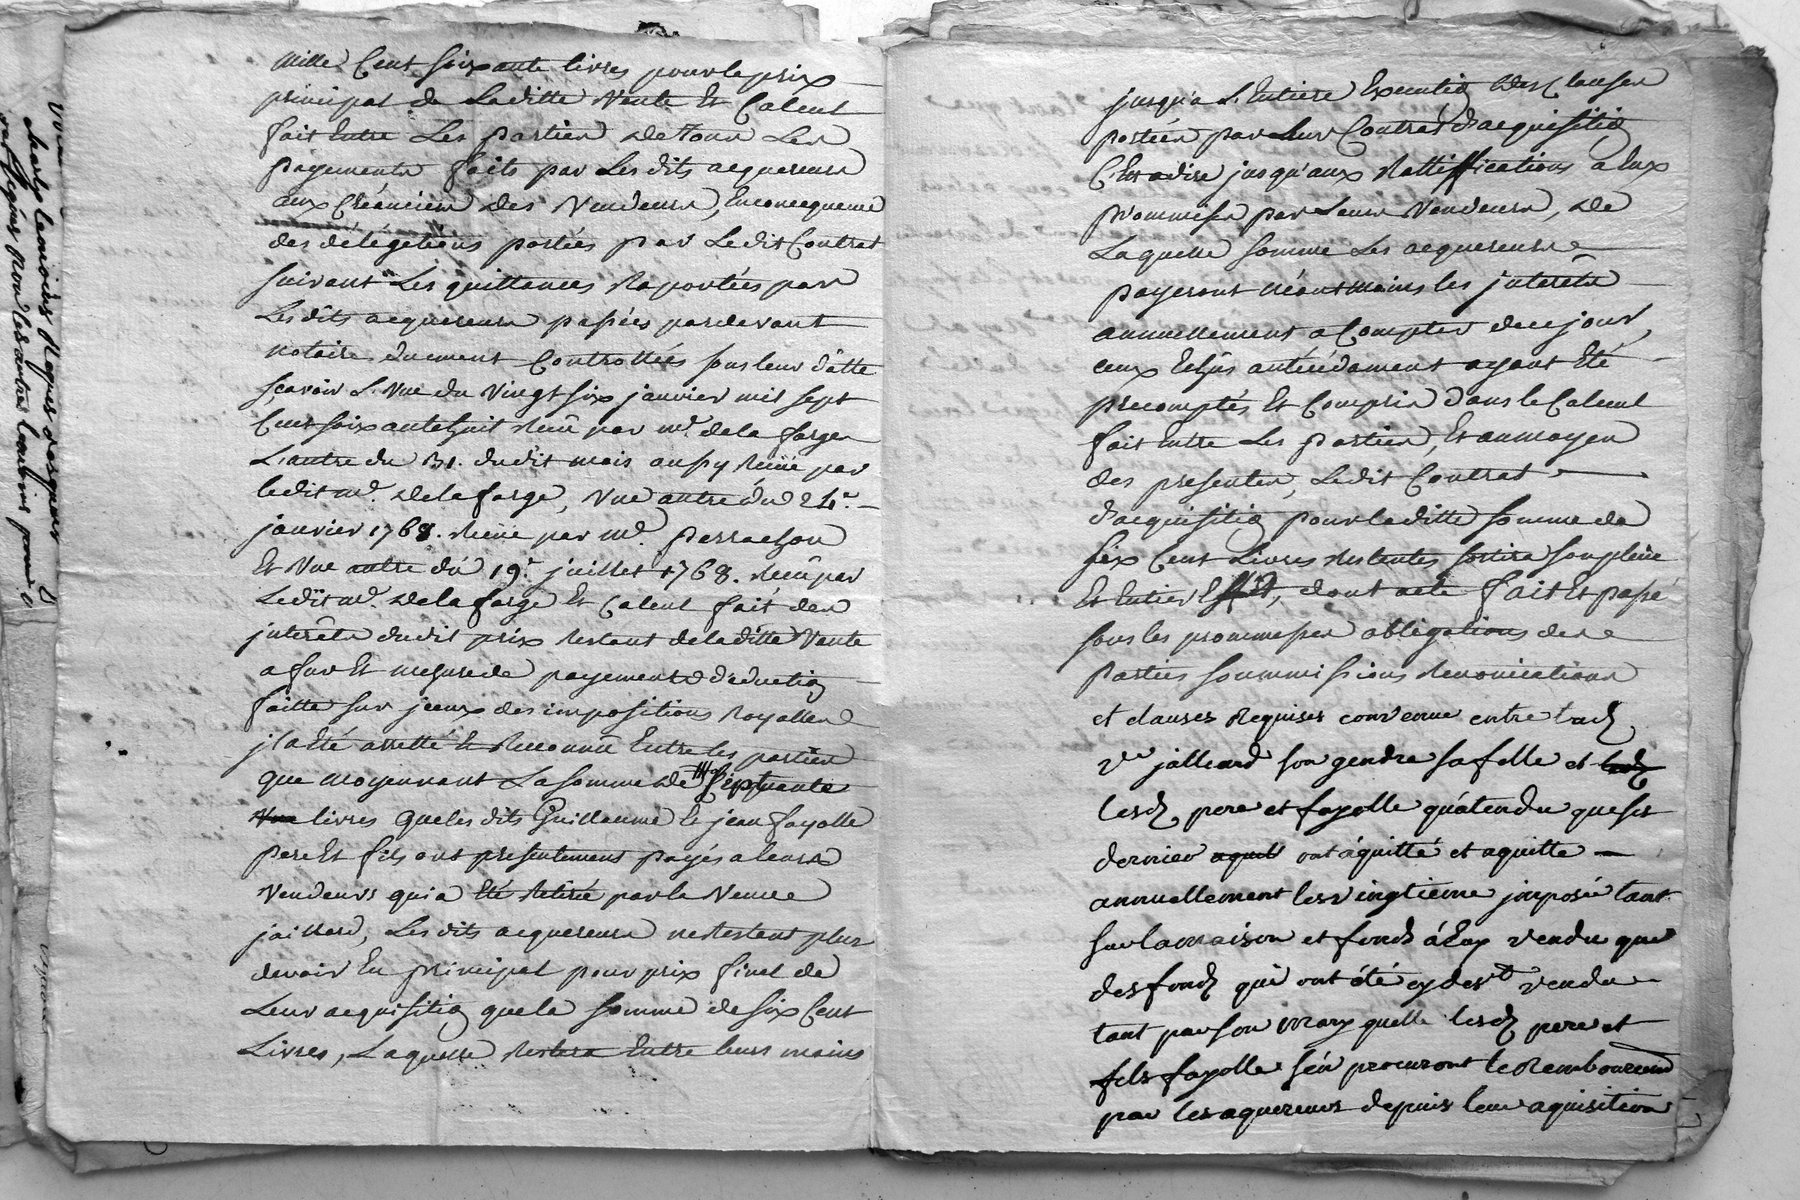 mille Cent soixante livres pour le prix
principal de Laditte Vente Et Calcul
fait Entre Les parties de tous Les
payements faits par Lesdits acquereurs
aux Créanciers des Vendeurs, Enconcequence
des délégations portées par Ledit Contrat
suivant Les quittances Raportées par
Lesdits acquereurs passées pardevant
notaire duement Controllées sous leur datte
sçavoir L'Une du Vingt six janvier mil sept
Cent soixante huit Reçu par me. delafarge
L'autre du 31. dudit mois aussy Reçüe par
ledit me. Delafarge, Une autre du 24e.
janvier 1768. Reçüe par me. perrachon
Et Une autre du 19e. juillet 1768. Reçue par
Ledit me. Delafarge Et Calcul fait des
interêts dudit prix Restant deladitte Vente
a fur Et mesure de payements déduction
faitte sur jceux des impositions Royalles
jl a Eté arretté Et Reconnu Entre les parties
que moyennant La somme de Septante
livres que les dits Guillaume Et jean fayolle
pere Et fils ont presentement payés a leurs
Vendeurs qui a Eté Retirée par la Veuve
jaillard, Les dits acquereurs ne restent plus
devoir En principal pour prix final de
Leur acquisition que la somme de six Cent
Livres, Laquelle Restera Entre leurs mains
jusqu'a L'Entiere Execution des Clauses
portées par Leur Contrat d'acquisition
C'Est adire jusqu'aux Rattiffications a Eux
promises par Leurs Vendeurs, de
Laquelle somme Les acquereurs
payeront néantmoins les jnterêts
annuellement a Compter de ce jour,
ceux Echus antécédament ayant Eté
precomptés Et Compris dans le Calcul
fait Entre Les parties, Et au moyen
des presentes, Ledit Contrat
d'acquisition pour laditte somme de
six Cent Livres Restantes sortira son plein
Et Entier Effet, dont acte fait Et passé
sous les promesses obligations des
parties soummissions Renonciations
et clauses Requises convenue entre lad.
ve jalliard son gendre sa fille et
lesd. pere et fayolle qu'atendu que ses
dernier ont aquitté et aquitte
annuellement les vingtieme jmposée tant
sur la maison et fonds a Eux vendu que
des fonds qui ont été cy devt vendu
tant par son mary quelle lesd. pere et
fils fayolle s'en procuront le Remboursemt
par les aquereurs depuis leur aquisition
charles lemoins Requis